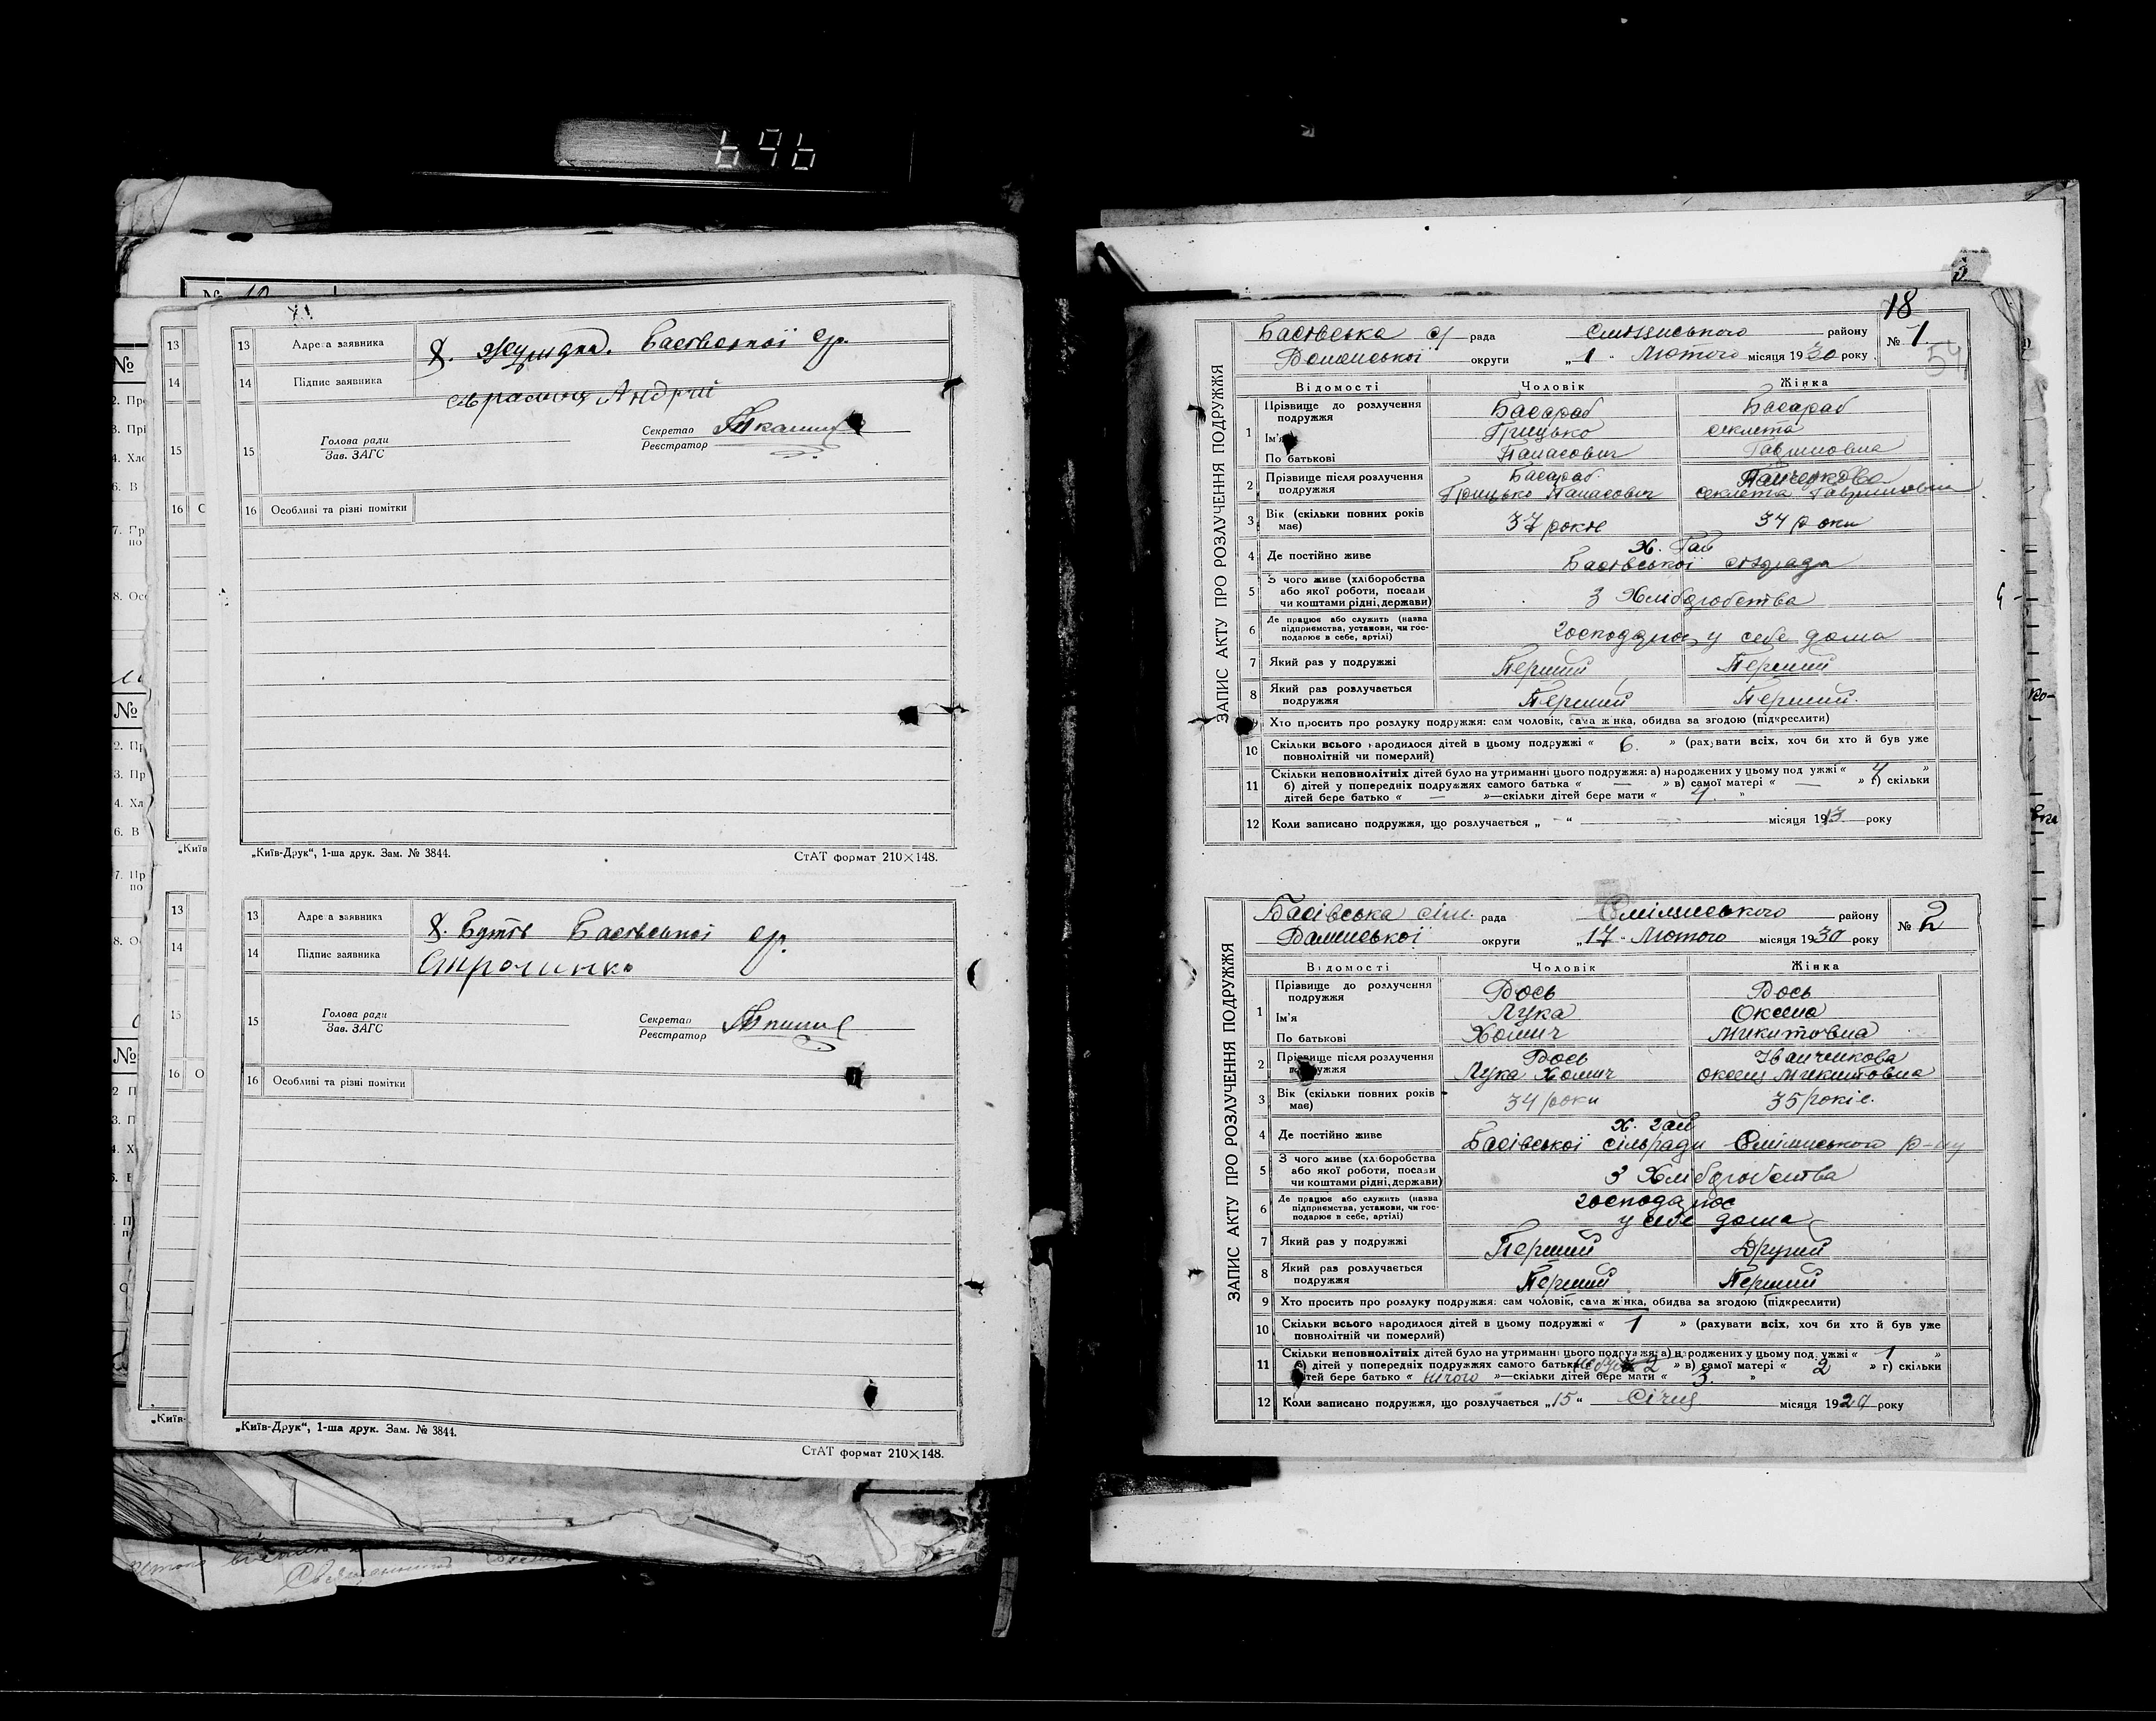 696
13 Адреса заявника Басівської ср.
14 Підпис заявника Андрій
15 Голова ради
Зав. ЗАГС
Секретар
Реєстратор
16 Особливі та різні помітки
„Київ-Друк“, 1-ша друк. Зам. № 3844. СтАТ формат 210×148.
13 Адреса заявника х. Бутів Басівської ср.
14 Підпис заявника
15 Голова ради
Зав. ЗАГС
Секретар
Реєстратор
16 Особливі та різні помітки
„Київ-Друк“, 1-ша друк. Зам. № 3844.
СтАТ формат 210×148.
18
54
ЗАПИС АКТУ ПРО РОЗЛУЧЕННЯ ПОДРУЖЖЯ
Басівська с/ рада району № 1.
округи „1“ Лютого місяця 1930 року
Відомості Чоловік Жінка
1 Прізвище до розлучення подружжя Басараб Басараб
Ім'я Грицько Секлета
По батькові Панасович Гавриловна
2 Прізвище після розлучення подружжя Басараб Панченкова
Грицько Панасович Секлета Гавриловна
3 Вік (скільки повних років має) 37 років 34 роки
4 Де постійно живе Х. Гай
Басівської с/ради
5 З чого живе (хліборобства або якої роботи, посади чи коштами рідні, держави) З Хліборобства
6 Де працює або служить (назва підприємства, установи, чи господарює в себе, артілі) господарює у себе дома
7 Який раз у подружжі Перший Перший
8 Який раз розлучається подружжя Перший Перший.
9 Хто просить про розлуку подружжя: сам чоловік, сама жінка, обидва за згодою (підкреслити)
10 Скільки всього народилося дітей в цьому подружжі « 6. » (рахувати всіх, хоч би хто й був уже
повнолітній чи померлий)
11 Скільки неповнолітніх дітей було на утриманні цього подружжя: а) народжених у цьому подружжі « 4 »
б) дітей у попередніх подружжях самого батька « — » в) самої матері « — » г) скільки
дітей бере батько « — »—скільки дітей бере мати « 4. »
12 Коли записано подружжя, що розлучається „ - “ місяця 1913 року
ЗАПИС АКТУ ПРО РОЗЛУЧЕННЯ ПОДРУЖЖЯ
Басівська сіль. рада району № 2
округи „17“ Лютого місяця 1930 року
Відомості Чоловік Жінка
1 Прізвище до розлучення подружжя Вось Вось
Ім'я Лука Оксена
По батькові Хомич Микитовна
2 Прізвище після розлучення подружжя Вось Іванченкова
Лука Хомич Микитовна
3 Вік (скільки повних років має) 34 роки 35 років.
4 Де постійно живе Х. Гай
Басівської сільради Смілянського р-ну
5 З чого живе (хліборобства або якої роботи, посади чи коштами рідні, держави) З Хліборобства
6 Де працює або служить (назва підприємства, установи, чи господарює в себе, артілі) господарює
у себе дома
7 Який раз у подружжі Перший Другий
8 Який раз розлучається подружжя Перший Перший
9 Хто просить про розлуку подружжя: сам чоловік, сама жінка, обидва за згодою (підкреслити)
10 Скільки всього народилося дітей в цьому подружжі « 1 » (рахувати всіх, хоч би хто й був уже
повнолітній чи померлий)
11 Скільки неповнолітніх дітей було на утриманні цього подружжя: а) народжених у цьому подружжі « 1 »
б) дітей у попередніх подружжях самого батька « 2 » в) самої матері « 2 » г) скільки
дітей бере батько « нічого »—скільки дітей бере мати « 3. »
12 Коли записано подружжя, що розлучається „15“ Січня місяця 1929 року